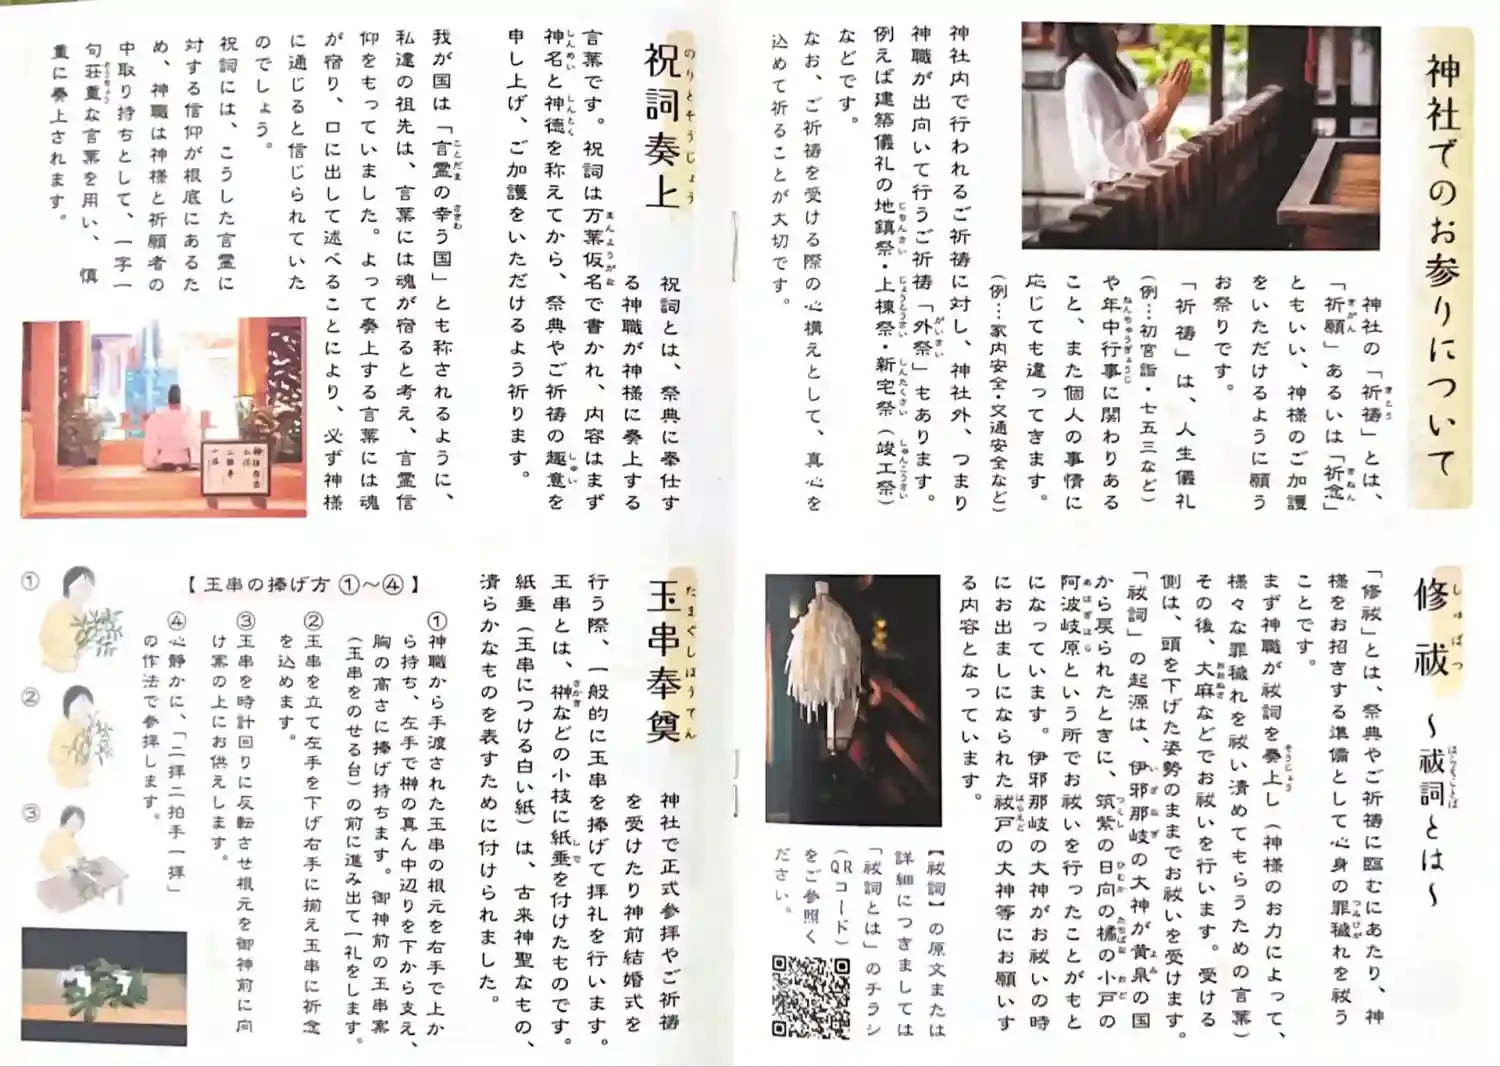 神社でのお参りについて
神社の「祈祷」とは、
「祈願」あるいは「祈念」
ともいい、神様のご加護
をいただけるように願う
お祭りです。
「祈祷」は、人生儀礼
(例…初宮詣・七五三など)
や年中行事に関わりある
こと、また個人の事情に
応じても違ってきます。
(例…家内安全・交通安全など)
神社内で行われるご祈祷に対し、神社外、つまり
神職が出向いて行うご祈祷「外祭」もあります。
例えば建築儀礼の地鎮祭・上棟祭・新宅祭(竣工祭)
などです。
なお、ご祈祷を受ける際の心構えとして、真心を
込めて祈ることが大切です。
修祓 〜祓詞とは〜
「修祓」とは、祭典やご祈祷に臨むにあたり、神
様をお招きする準備として心身の罪穢れを祓う
ことです。
まず神職が祓詞を奏上し(神様のお力によって、
様々な罪穢れを祓い清めてもらうための言葉)
その後、大麻などでお祓いを行います。受ける
側は、頭を下げた姿勢のままでお祓いを受けます。
「祓詞」の起源は、伊邪那岐の大神が黄泉の国
から戻られたときに、筑紫の日向の橘の小戸の
阿波岐原という所でお祓いを行ったことがもと
になっています。伊邪那岐の大神がお祓いの時
にお出ましになられた祓戸の大神等にお願いす
る内容となっています。
【祓詞】の原文または
詳細につきましては
「祓詞とは」のチラシ
(QRコード)
をご参照く
ださい。
祝詞奏上
のりとそうじょう
祝詞とは、祭典に奉仕す
る神職が神様に奏上する
言葉です。祝詞は万葉仮名で書かれ、内容はまず
神名と神徳を称えてから、祭典やご祈祷の趣意を
申し上げ、ご加護をいただけるよう祈ります。
我が国は「言霊の幸う国」とも称されるように、
私達の祖先は、言葉には魂が宿ると考え、言霊信
仰をもっていました。よって奏上する言葉には魂
が宿り、口に出して述べることにより、必ず神様
に通じると信じられていた
のでしょう。
祝詞には、こうした言霊に
対する信仰が根底にあるた
め、神職は神様と祈願者の
中取り持ちとして、一字一
句荘重な言葉を用い、慎
重に奏上されます。
玉串奉奠
たまぐしほうてん
神社で正式参拝やご祈祷
を受けたり神前結婚式を
行う際、一般的に玉串を捧げて拝礼を行います。
玉串とは、榊などの小枝に紙垂を付けたものです。
紙垂(玉串につける白い紙)は、古来神聖なもの、
清らかなものを表すために付けられました。
【玉串の捧げ方 ①〜④】
①神職から手渡された玉串の根元を右手で上か
ら持ち、左手で榊の真ん中辺りを下から支え、
胸の高さに捧げ持ちます。御神前の玉串案
(玉串をのせる台)の前に進み出て一礼をします。
②玉串を立て左手を下げ右手に揃え玉串に祈念
を込めます。
③玉串を時計回りに反転させ根元を御神前に向
け案の上にお供えします。
④心静かに、「二拝二拍手一拝」
の作法で参拝します。
①
②
③